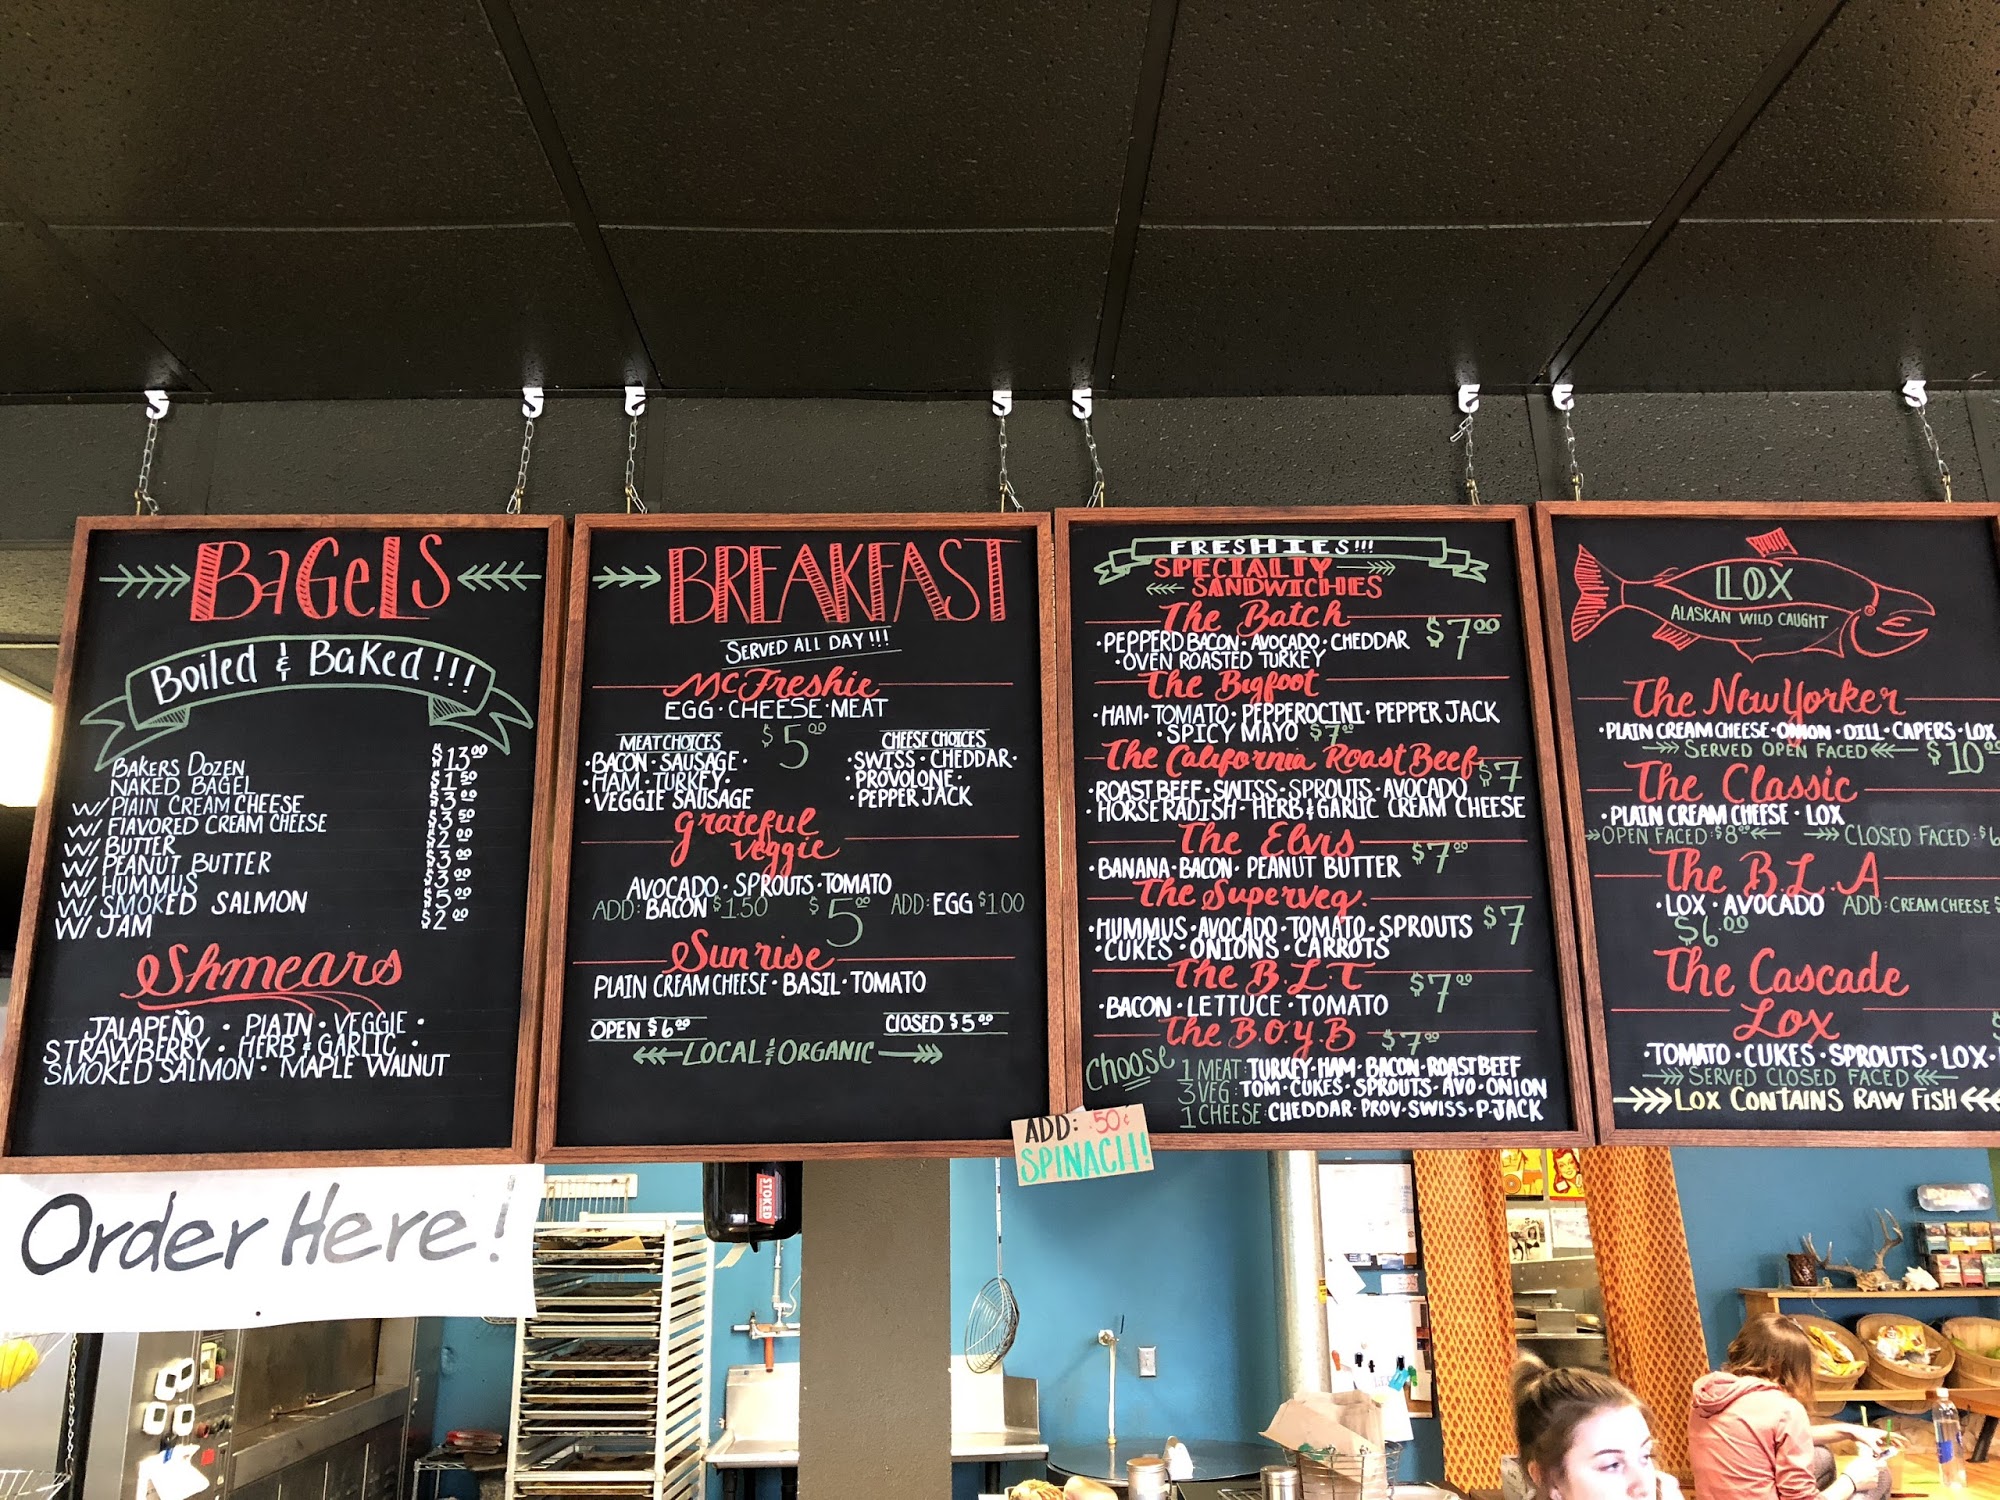 BAGELS
Boiled & Baked!!!
BAKERS DOZEN $13.00
NAKED BAGEL $1.50
W/ PLAIN CREAM CHEESE $3.00
W/ FLAVORED CREAM CHEESE $3.50
W/ BUTTER $2.00
W/ PEANUT BUTTER $3.00
W/ HUMMUS $3.00
W/ SMOKED SALMON $5.00
W/ JAM $2.00
Shmears
JALAPEÑO • PLAIN • VEGGIE •
STRAWBERRY • HERB & GARLIC •
SMOKED SALMON • MAPLE WALNUT
Order Here!
BREAKFAST
SERVED ALL DAY!!!
McFreshie
EGG • CHEESE • MEAT
$5.00
MEAT CHOICES
• BACON • SAUSAGE •
• HAM • TURKEY •
• VEGGIE SAUSAGE
CHEESE CHOICES
• SWISS • CHEDDAR •
• PROVOLONE •
• PEPPER JACK
grateful
veggie
AVOCADO • SPROUTS • TOMATO
ADD: BACON $1.50 $5.00 ADD: EGG $1.00
Sunrise
PLAIN CREAM CHEESE • BASIL • TOMATO
OPEN $6.00 CLOSED $5.00
LOCAL & ORGANIC
FRESHIES!!!
SPECIALTY
SANDWICHES
The Batch
• PEPPERD BACON • AVOCADO • CHEDDAR $7.00
• OVEN ROASTED TURKEY
The Bigfoot
• HAM • TOMATO • PEPPEROCINI • PEPPER JACK
• SPICY MAYO $7.00
The California Roast Beef $7
• ROAST BEEF • SWISS • SPROUTS • AVOCADO
• HORSERADISH • HERB & GARLIC CREAM CHEESE
The Elvis
• BANANA • BACON • PEANUT BUTTER $7.00
The Superveg.
• HUMMUS • AVOCADO • TOMATO • SPROUTS $7
• CUKES • ONIONS • CARROTS
The B.L.T
• BACON • LETTUCE • TOMATO $7.00
The B.O.Y.B $7.00
CHOOSE
1 MEAT: TURKEY • HAM • BACON • ROAST BEEF
3 VEG: TOM • CUKES • SPROUTS • AVO • ONION
1 CHEESE: CHEDDAR • PROV • SWISS • P.JACK
ADD: .50¢
SPINACH!
STOKED
LOX
ALASKAN WILD CAUGHT
The NewYorker
• PLAIN CREAM CHEESE • ONION • DILL • CAPERS • LOX
SERVED OPEN FACED $10.00
The Classic
• PLAIN CREAM CHEESE • LOX
OPEN FACED: $8.00 CLOSED FACED: $6
The B.L.A
• LOX • AVOCADO ADD: CREAM CHEESE $
$6.00
The Cascade
Lox
• TOMATO • CUKES • SPROUTS • LOX •
SERVED CLOSED FACED
LOX CONTAINS RAW FISH